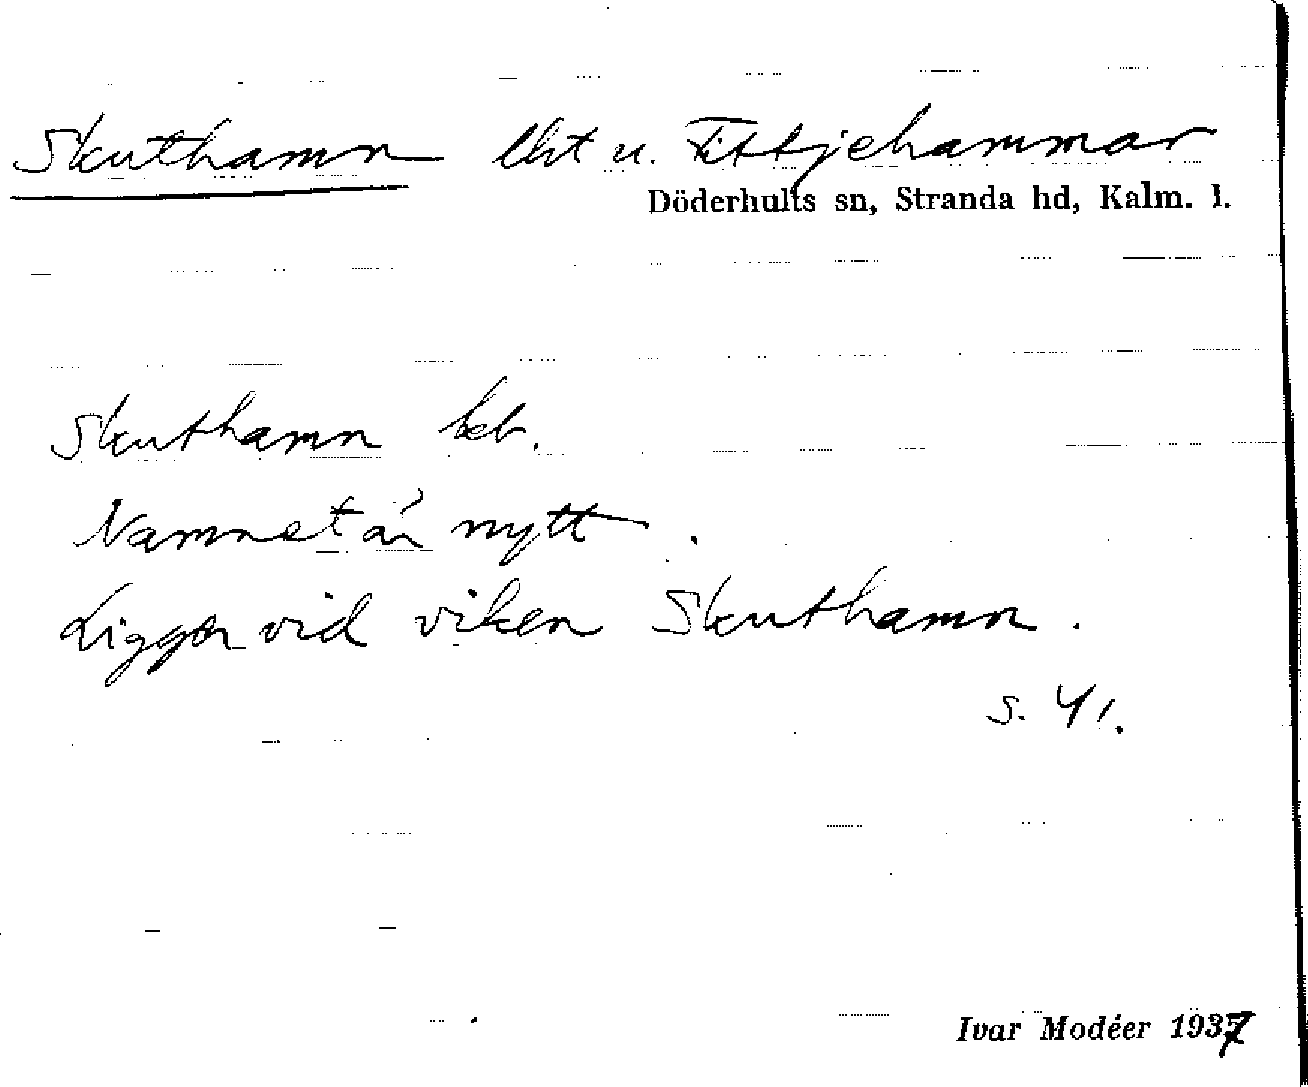 Skuthamn lht u. Fittjehammar
Döderhults sn, Stranda hd, Kalm. l.
Skuthamn beb.
Namnet är nytt.
Ligger vid viken Skuthamn.
s. 41.
Ivar Modéer 1937